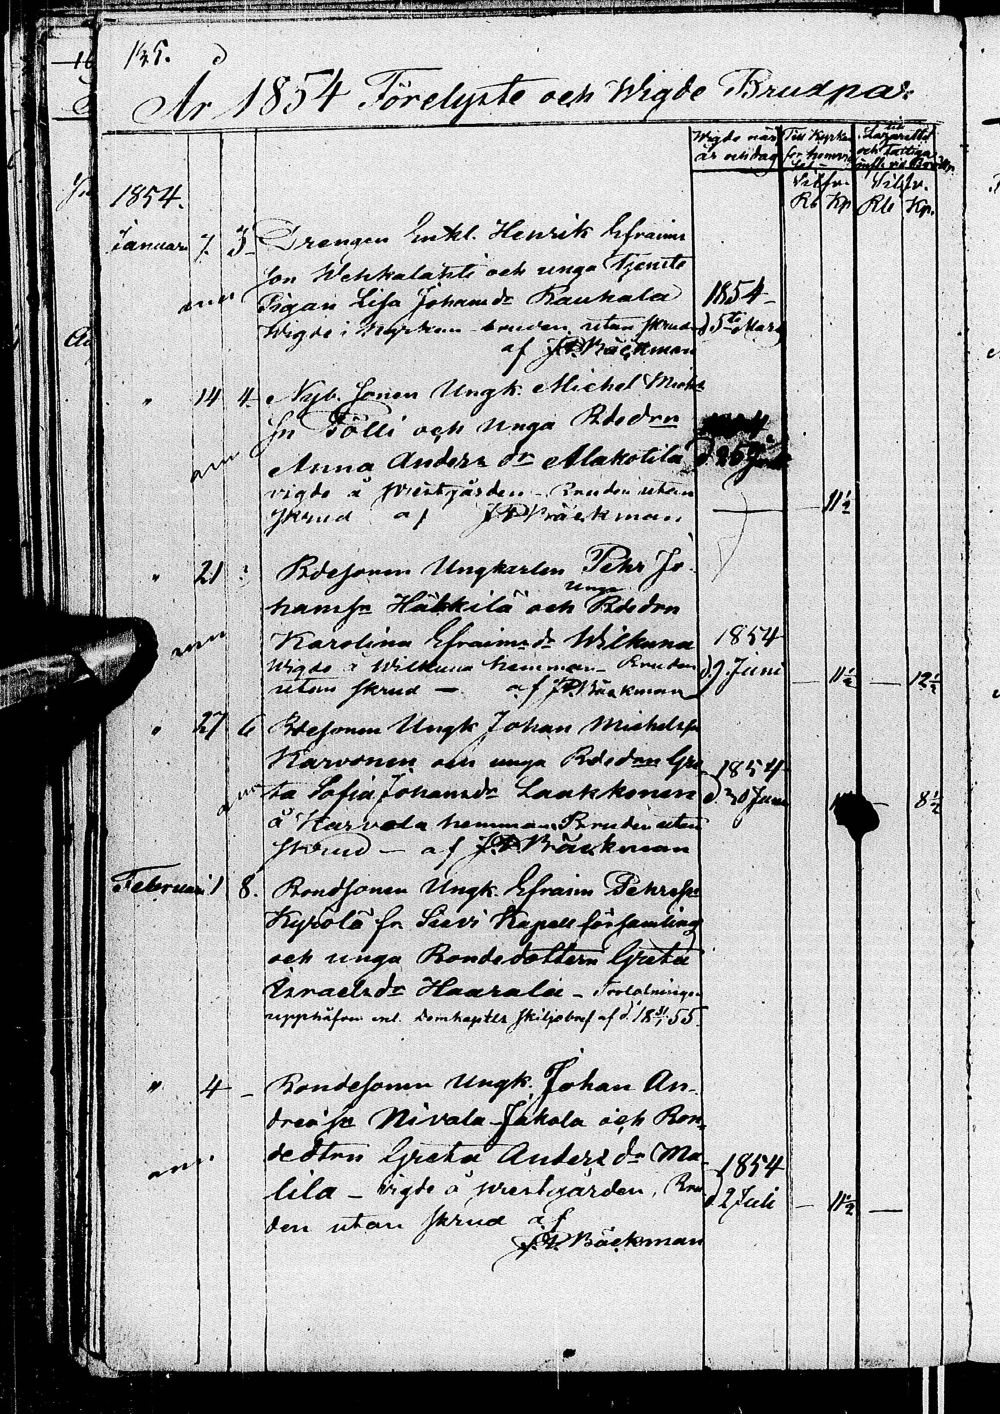 135.
År 1854 Förelyste och Wigde Brudpar
Wigde när
år och dag
Till Kyrkan
till Lazarettet
och Fattiga
Silfv.
Rb Kp
Silfv.
Rb Kp.
1854.
Januari 7. 3 Drengen Enkl. Henrik Efraims
son Wehkalahti och unga Tjenste
Pigan Lisa Johansdr Kauhala
Wigde i Kyrkan bruden utan skrud
af J.V. Bäckman
1854
d 5te Mars
" 14 4 Nyb. Sonen Ungk. Michel Michels
sn Pölli och Unga Bdedrn
Anna Anders dr Alakotila
vigde å Prestgården Bruden utan
skrud af J.V. Bäckman
11½
" 21 Bdesonen Ungkarlen Pehr Jo-
hansn Häkkilä och unga Bdedrn
Karolina Efraimsdr Wilkuna
Wigde å Wilkuna hemman Bruden
utan skrud — af J.V. Bäckman
1854
d. 9 Juni
11½ — 12½
" 27 6 Bdesonen Ungk Johan Michelssn
Karvonen och unga Bdedrn Gre
ta Sofia Johansdr Laakkonen
å Karvola hemman. Bruden utan
skrud — af J.V. Bäckman
1854
d. 30 Juni
8½
Februari 1 8. Bondsonen Ungk. Efraim Pehrssn
Kyrölä fr. Sievi Kapellförsamling
och unga Bondedottern Greta
Israelsdr Haarala — Trolofningen
upphäfven enl. Domkaptls Skiljobref af d. 18 31/1 55.
" 4 — Bondesonen Ungk. Johan An-
dreæsn Nivala Jakola och Bon-
dedtrn Greta Anders dr Ma-
lila — vigde å prestgården, Bru
den utan skrud af
J.V. Bäckman
1854
d 2 Juli
— 11½ —